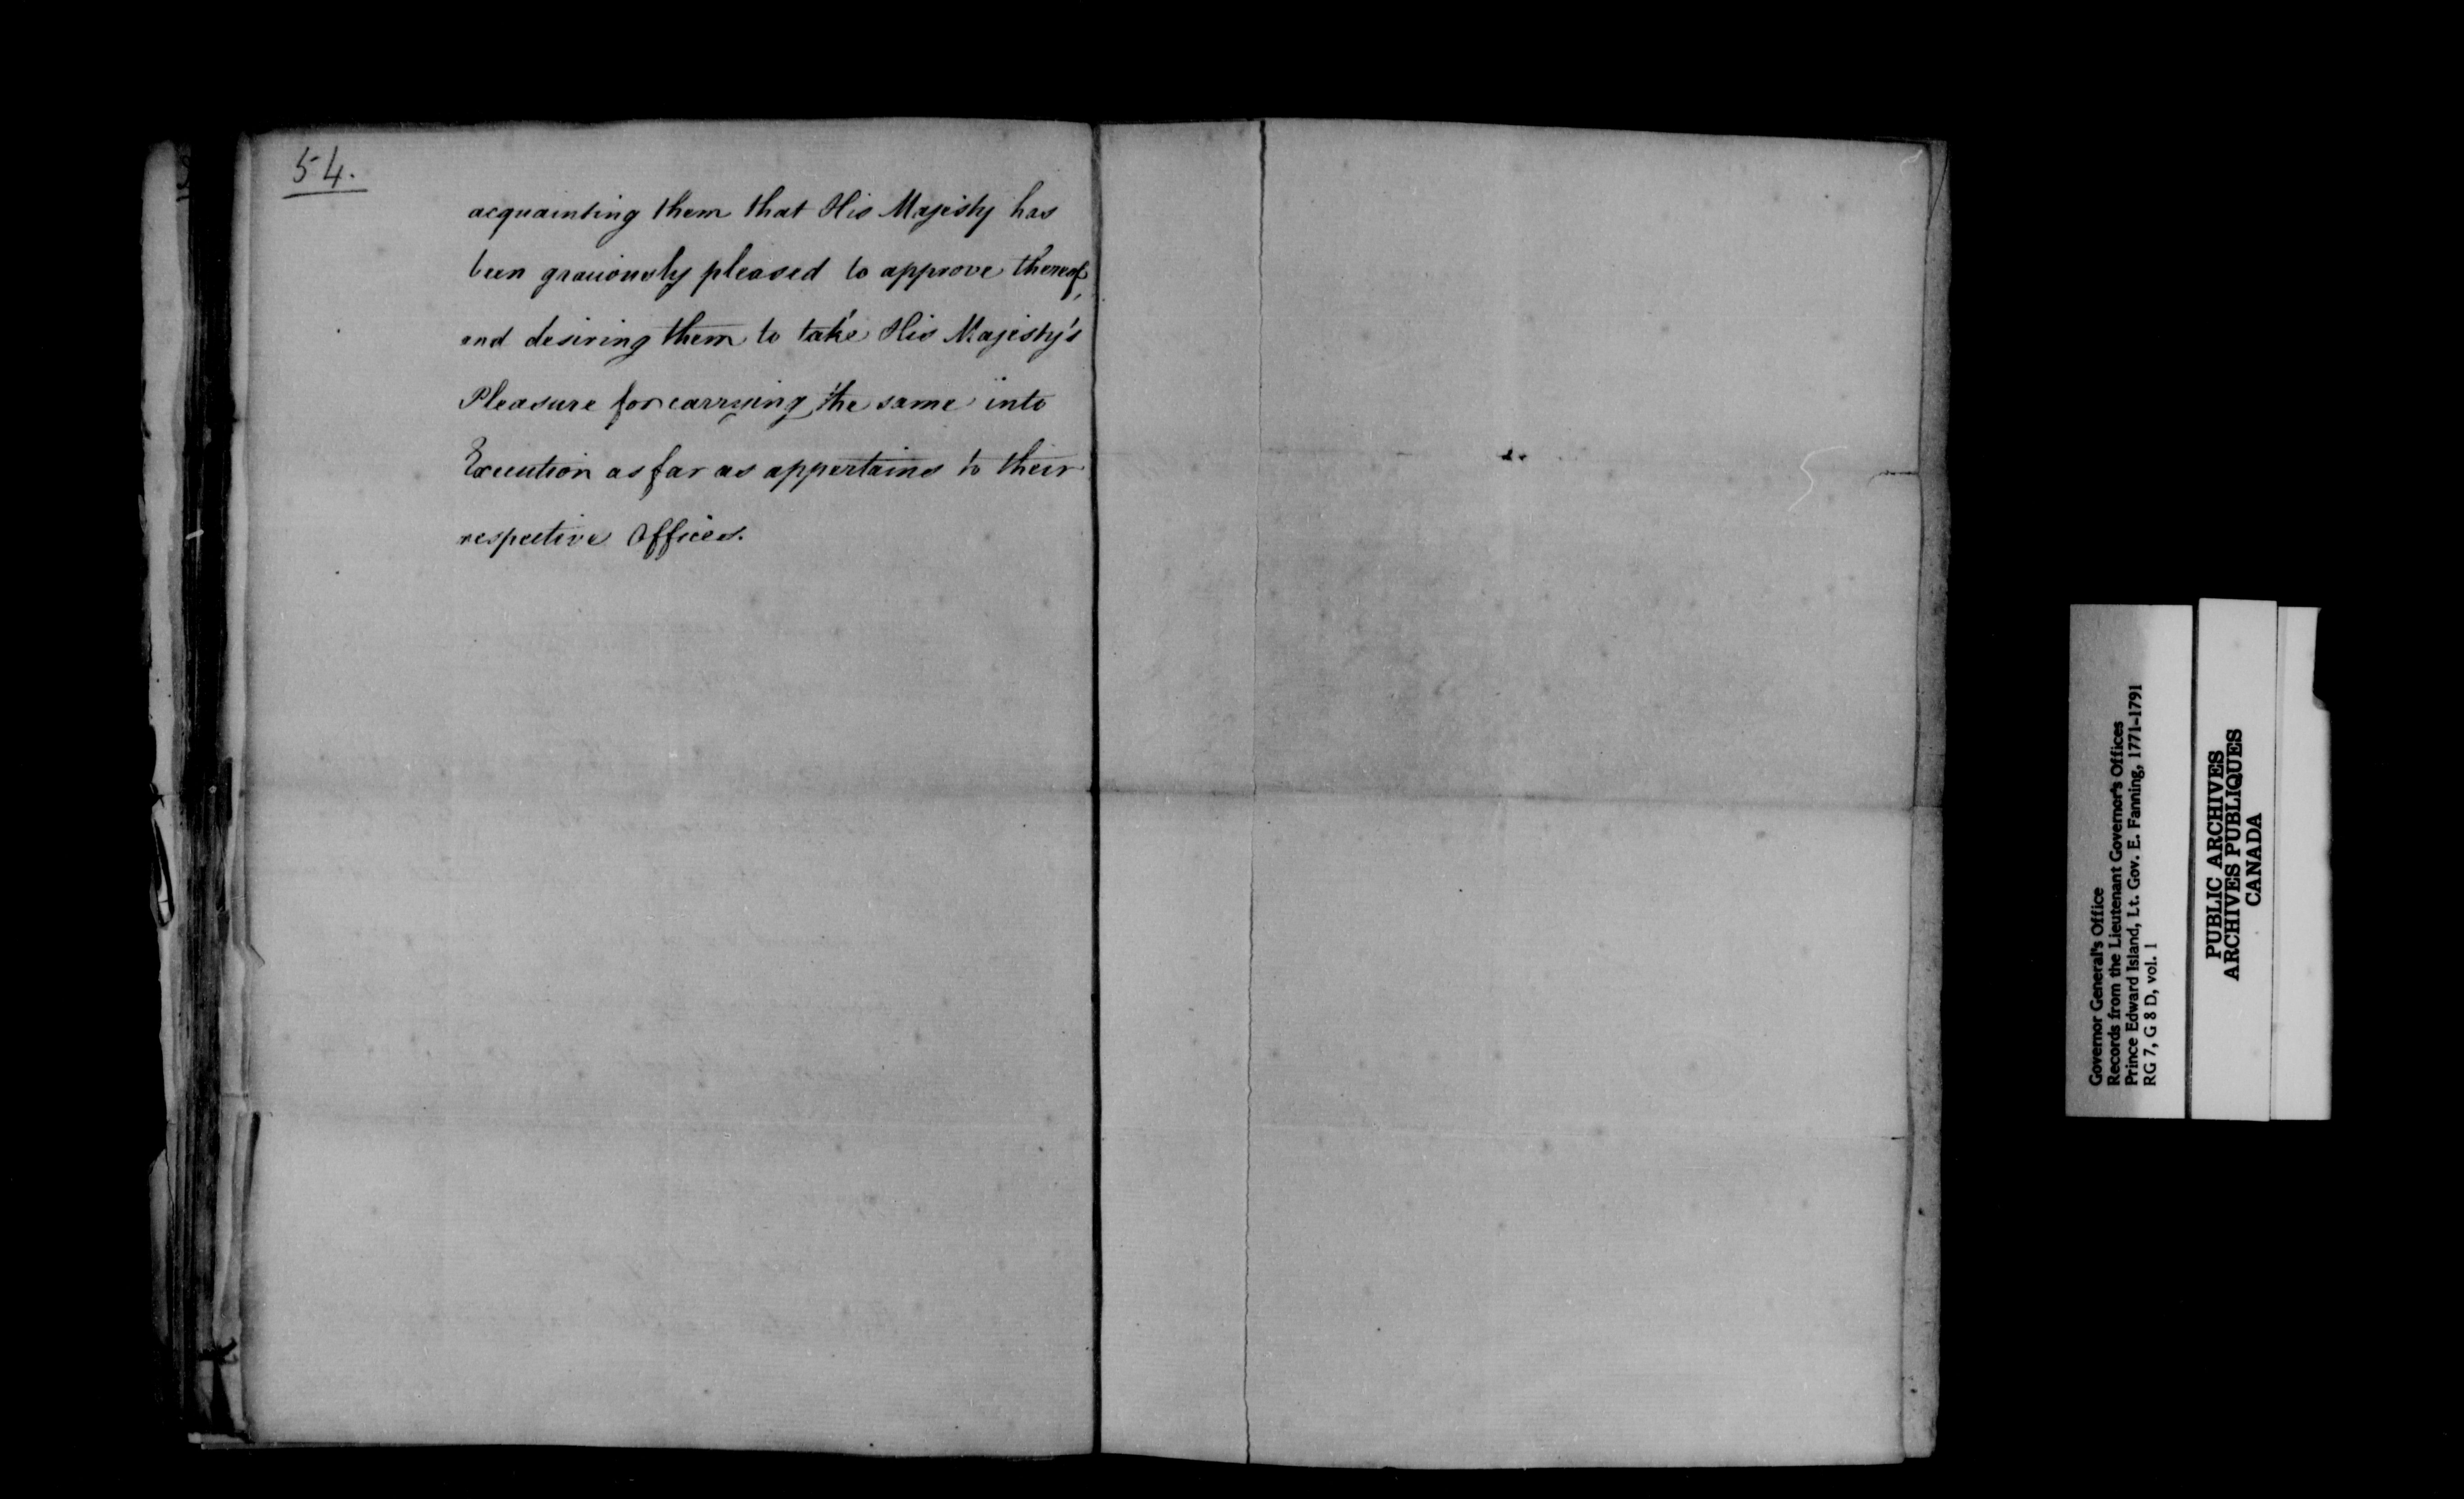 54.
acquainting them that His Majesty has
been graciously pleased to approve thereof,
and desiring them to take His Majesty's
Pleasure for carrying the same into
Execution as far as appertains to their
respective Offices.
Governor General's Office
Records from the Lieutenant Governor's Offices
Prince Edward Island, Lt. Gov. E. Fanning, 1771-1791
RG 7, G 8 D, vol. 1
PUBLIC ARCHIVES
ARCHIVES PUBLIQUES
CANADA